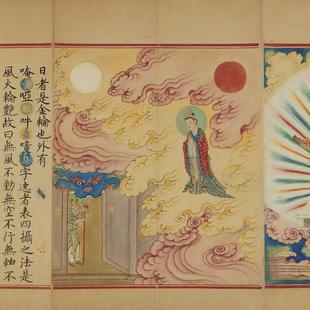 日者是金輪也外有
唵啞吽囕字遶者表四攝之法是
風火輪艷故曰無風不動無空不行無軸不